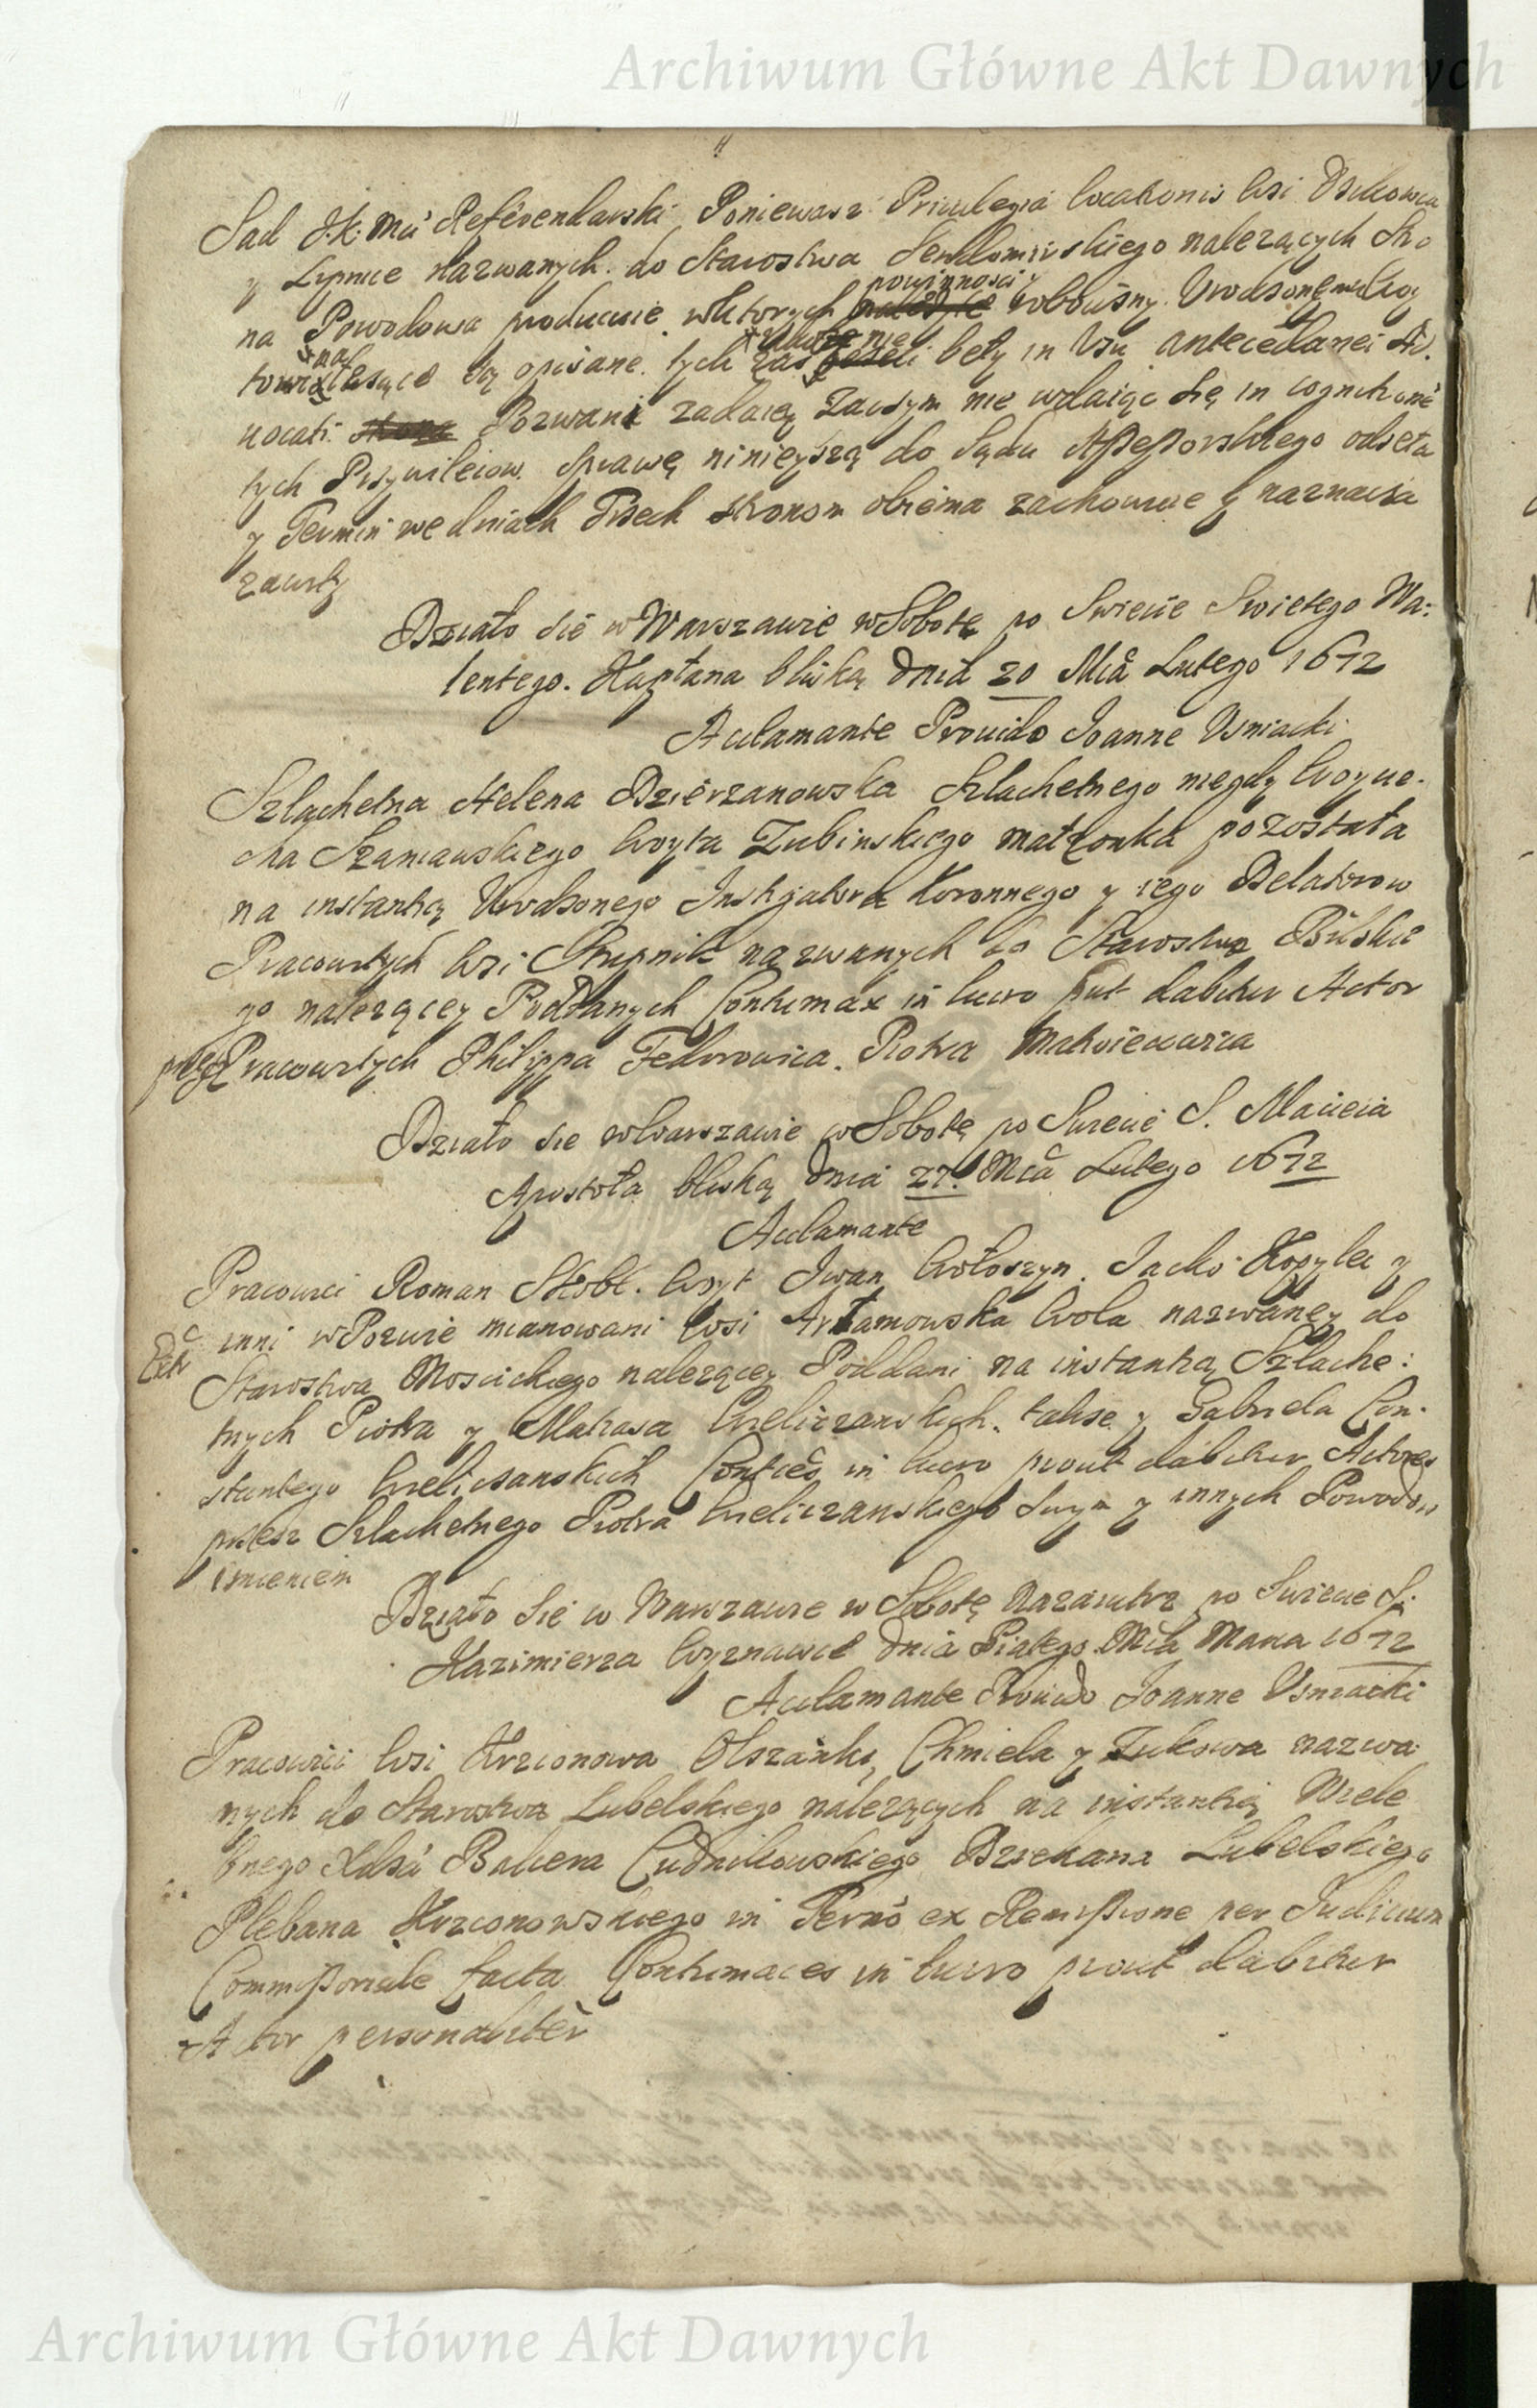 Archiwum Główne Akt Dawnych
Sad J.K. Mci Referendarski Poniewasz Priuilegia locationis wsi
y Lipnice nazwanych do Starostwa Sendomirskiego nalezących Stro
na Powodowa producuie wktorych powinnosci robocizny Urodzonemu
naleząće są opisane tych zas iezeli były in Usu antecedanei
uocati Pozwani zadaią Zaczym nie wdaiąc się in cognitionē
tych Przywileiow Sprawę ninieyszą do Sądu Assessorskiego odseła
y Termin we dniach Trzech stronom obiema zachowuie y naznacza
zawity
Działo sie w Warszawie w Sobotę po Swiecie Swietego Wa:
lentego Kapłana bliską dnia 20 Mca Lutego 1672
Acclamante Prouido Joanne Usniacki
Szlachetna Helena Dzierzanowska Szlachetnego niegdy Woycie-
cha Szaniawskiego Woyta Zubinskiego małzonka pozostała
na instantią Urodzonego Instigatora Koronnego y iego Delatorow
Pracowitych wsi Stupnik nazwanych do Starostwa
go nalezącey Poddanych Contumax in lucro put dabitur Actor
przez Pracowitych Philippa Fedorowica Piotra Matwiewicza
Działo sie w Warszawie w Sobotę po Swiecie S. Macieia
Apostoła bliską dnia 27. Mca Lutego 1672
Acclamante
Pracowici Roman Woyt Iwan Wołoszyn Jacko Kopylec y
Extr
inni w Pozwie mianowani wsi Artamowska Wola nazwaney do
Starostwa Moscickiego nalezącey Poddani na instantią Szlache:
tnych Piotra y Matiasa Wieliczanskich takze y Gabriela Con-
stantego Wieliczanskich Contces in lucro prout dabitur Actores
przesz Szlachetnego Piotra Wieliczanskiego Swym y innych Powodow
imieniem
Działo Sie w Warszawie w Sobotę Nazaiutrz po Swiecie S.
Kazimierza Wyznawce dnia Piątego Mca Marca 1672
Acclamante Prouido Joanne Usniacki
Pracowici wsi Krzczonowa Olszanki Chmiela y Zukowa nazwa
nych do Starostwa Lubelskiego nalezących na instantią Wiele
bnego Xdza Cudnikowskiego Dziekana Lubelskiego
Plebana Krzczonowskiego in Termō ex Remissione per Iudicium
Commissoriale facta Contumaces in lucro prout dabitur
Actor personaliter
Archiwum Główne Akt Dawnych